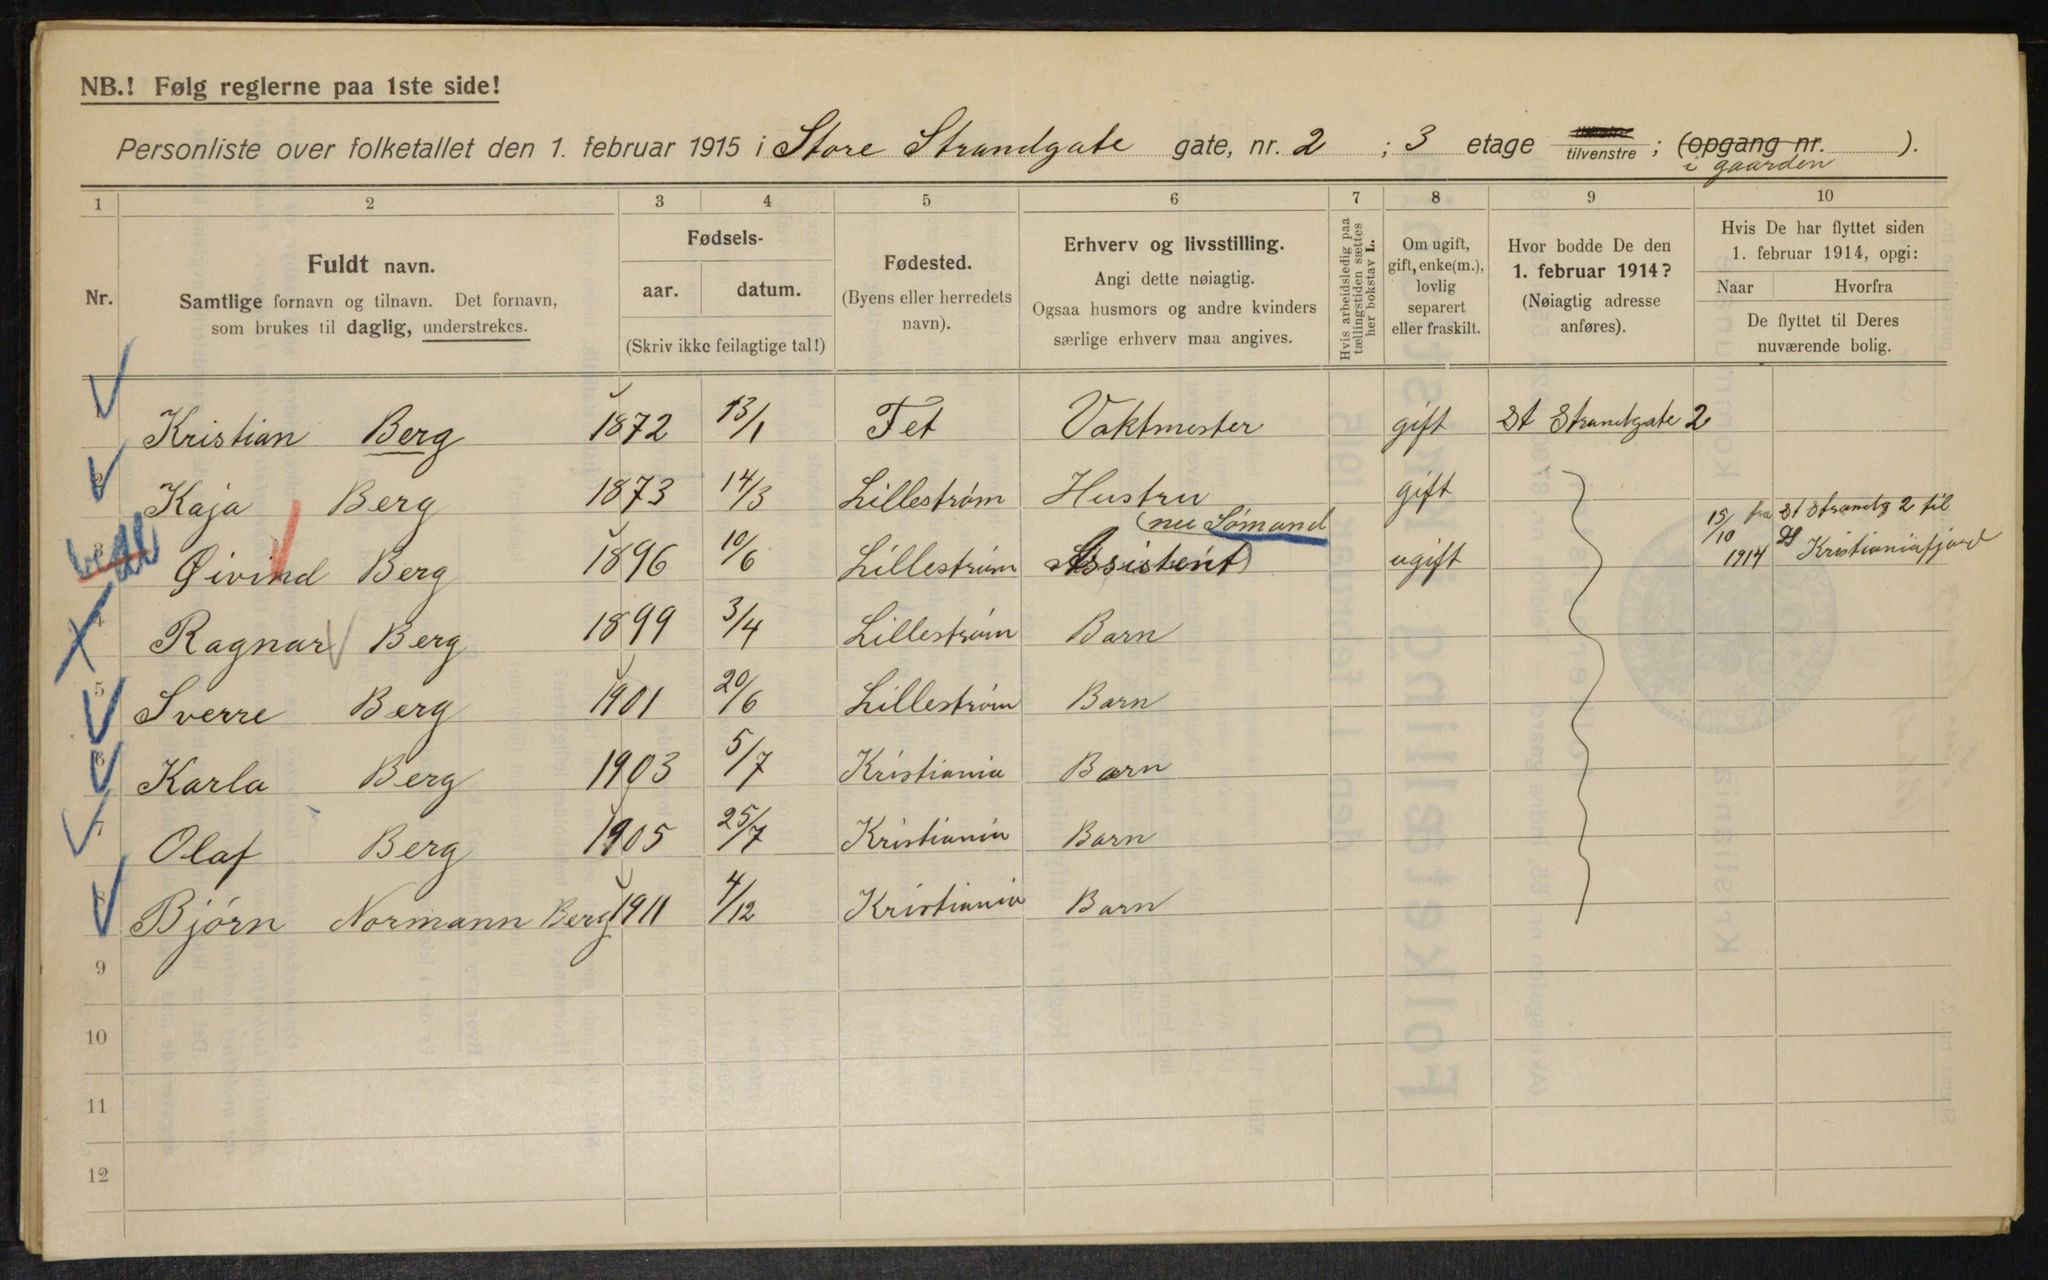 NB.! Følg reglerne paa 1ste side!
Personliste over folketallet den 1. februar 1915 i Store Strandgate gate, nr. 2 ; 3 etage tilvenstre ; (opgang nr. ).
i gaarden
1 2 3 4 5 6 7 8 9 10
Nr.
Fuldt navn.
Samtlige fornavn og tilnavn. Det fornavn,
som brukes til daglig, understrekes.
Fødsels-
aar. datum.
(Skriv ikke feilagtige tal!)
Fødested.
(Byens eller herredets
navn).
Erhverv og livsstilling.
Angi dette nøiagtig.
Ogsaa husmors og andre kvinders
særlige erhverv maa angives.
Hvis arbeidsledig paa
tællingstiden sættes
her bokstav L.
Om ugift,
gift, enke(m.),
lovlig
separert
eller fraskilt.
Hvor bodde De den
1. februar 1914?
(Nøiagtig adresse
anføres).
Hvis De har flyttet siden
1. februar 1914, opgi:
Naar Hvorfra
De flyttet til Deres
nuværende bolig.
1 Kristian Berg 1872 13/1 Fet Vaktmester gift St Strandgate 2
2 Kaja Berg 1873 14/3 Lillestrøm Hustru gift
3 Øivind Berg 1896 10/6 Lillestrøm (nu Sømand Assistent) ugift 15/10 1914 fra St Strandg 2 til Kristianiafjord
4 Ragnar Berg 1899 3/4 Lillestrøm Barn
5 Sverre Berg 1901 20/6 Lillestrøm Barn
6 Karla Berg 1903 5/7 Kristiania Barn
7 Olaf Berg 1905 25/7 Kristiania Barn
8 Bjørn Normann Berg 1911 4/12 Kristiania Barn
9
10
11
12